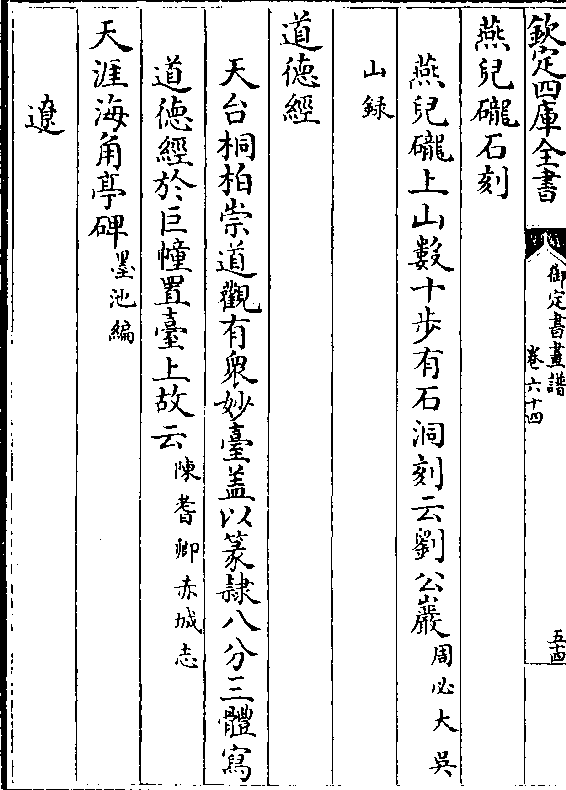 欽定四庫全書
御定書畫譜
卷六十四
五十四
燕兒礲石刻
燕兒礲上山數十步有石洞刻云劉公巖周必大吳
山録
道德經
天台桐柏崇道觀有衆妙臺盖以篆隷八分三體寫
道德經於巨幢置臺上故云陳耆卿赤城志
天涯海角亭碑墨池編
遼